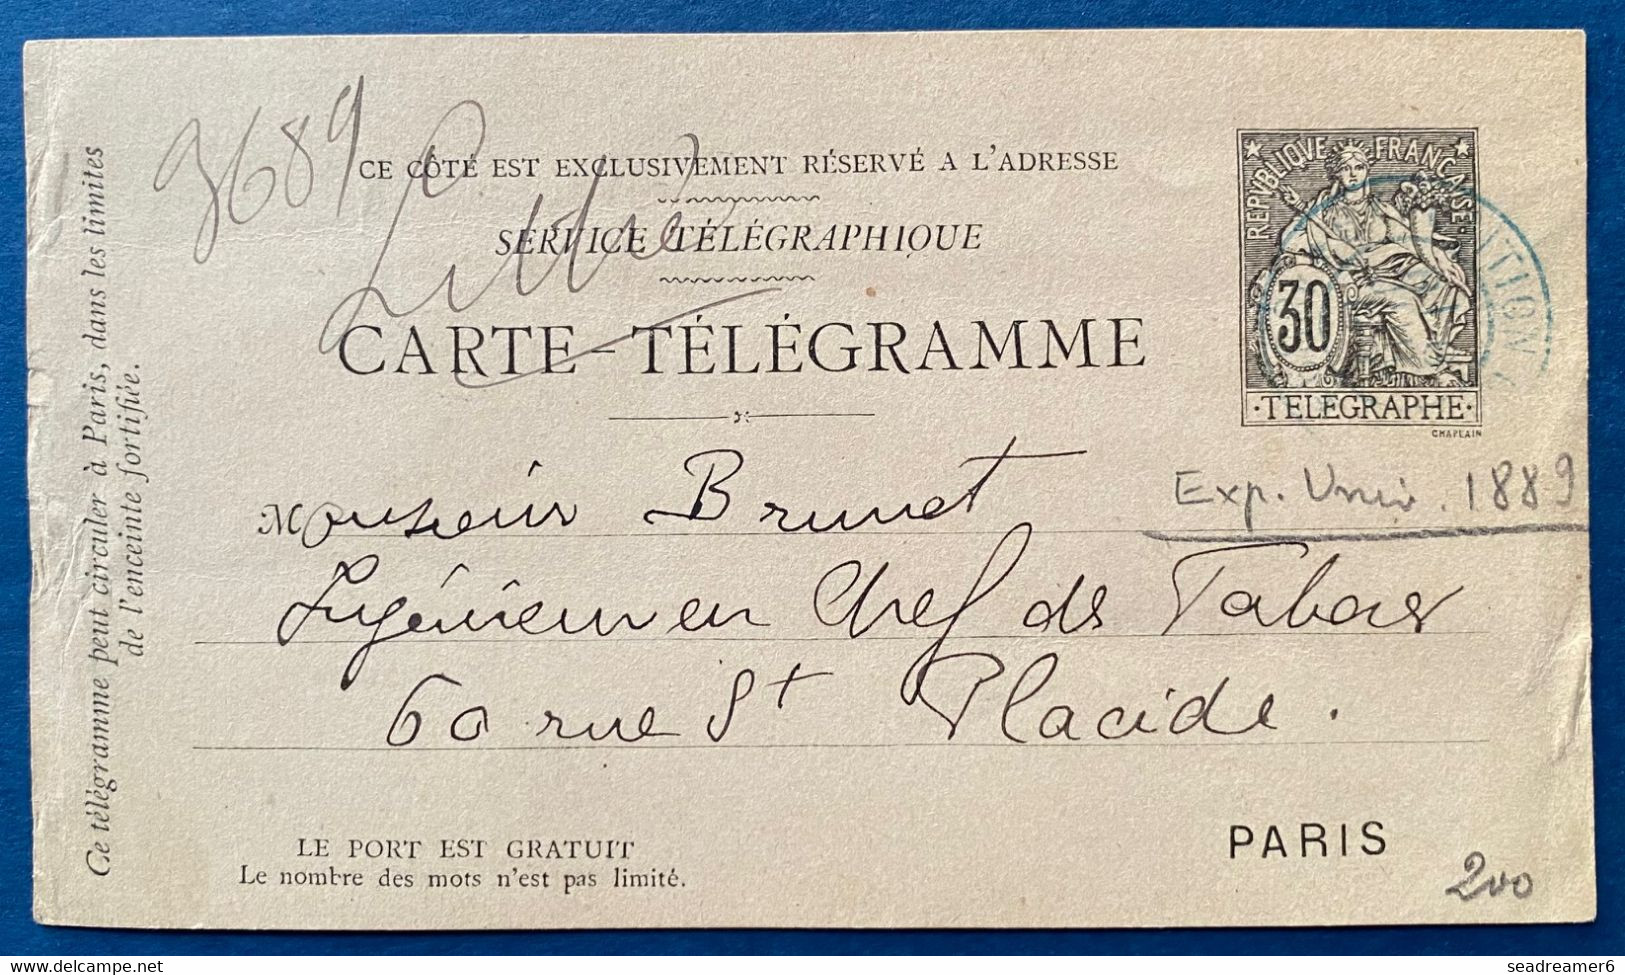 3689
Littré
CE CÔTÉ EST EXCLUSIVEMENT RÉSERVÉ A L'ADRESSE
SERVICE TÉLÉGRAPHIQUE
CARTE-TÉLÉGRAMME
REPUBLIQUE FRANÇAISE
30
·TELEGRAPHE·
CHAPLAIN
ITION
Exp. Univ. 1889
Monsieur Brunet
Ingénieur en Chef des Tabacs
60 rue St Placide.
Ce télégramme peut circuler à Paris, dans les limites
de l'enceinte fortifiée.
LE PORT EST GRATUIT
Le nombre des mots n'est pas limité.
PARIS
200
www.delcampe.net
seadreamer6